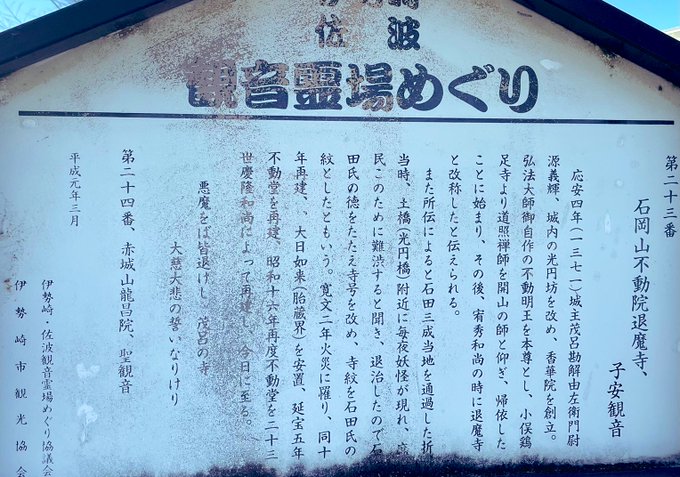 佐波
観音霊場めぐり
第二十三番
石岡山不動院退魔寺、
子安観音
応安四年（一三七一）城主茂呂勘解由左衛門尉
源義輝、城内の光円坊を改め、香華院を創立。
弘法大師御自作の不動明王を本尊とし、小俣鶏
足寺より道照禅師を開山の師と仰ぎ、帰依した
ことに始まり、その後、宥秀和尚の時に退魔寺
と改称したと伝えられる。
また所伝によると石田三成当地を通過した折、
当時、土橋（光円橋）附近に毎夜妖怪が現れ、
民このために難渋すると聞き、退治したので石
田氏の徳をたたえ寺号を改め、寺紋を石田氏の
紋としたともいう。寛文二年火災に罹り、同十
年再建、、大日如来（胎蔵界）を安置、延宝五年
不動堂を再建、昭和十六年再度不動堂を二十三
世慶隆和尚によって再建し、今日に至る。
悪魔をば皆退けし 茂呂の寺
大慈大悲の誓いなりけり
第二十四番、赤城山龍昌院、聖観音
平成元年三月
伊勢崎・佐波観音霊場めぐり協議会
伊勢崎市観光協会